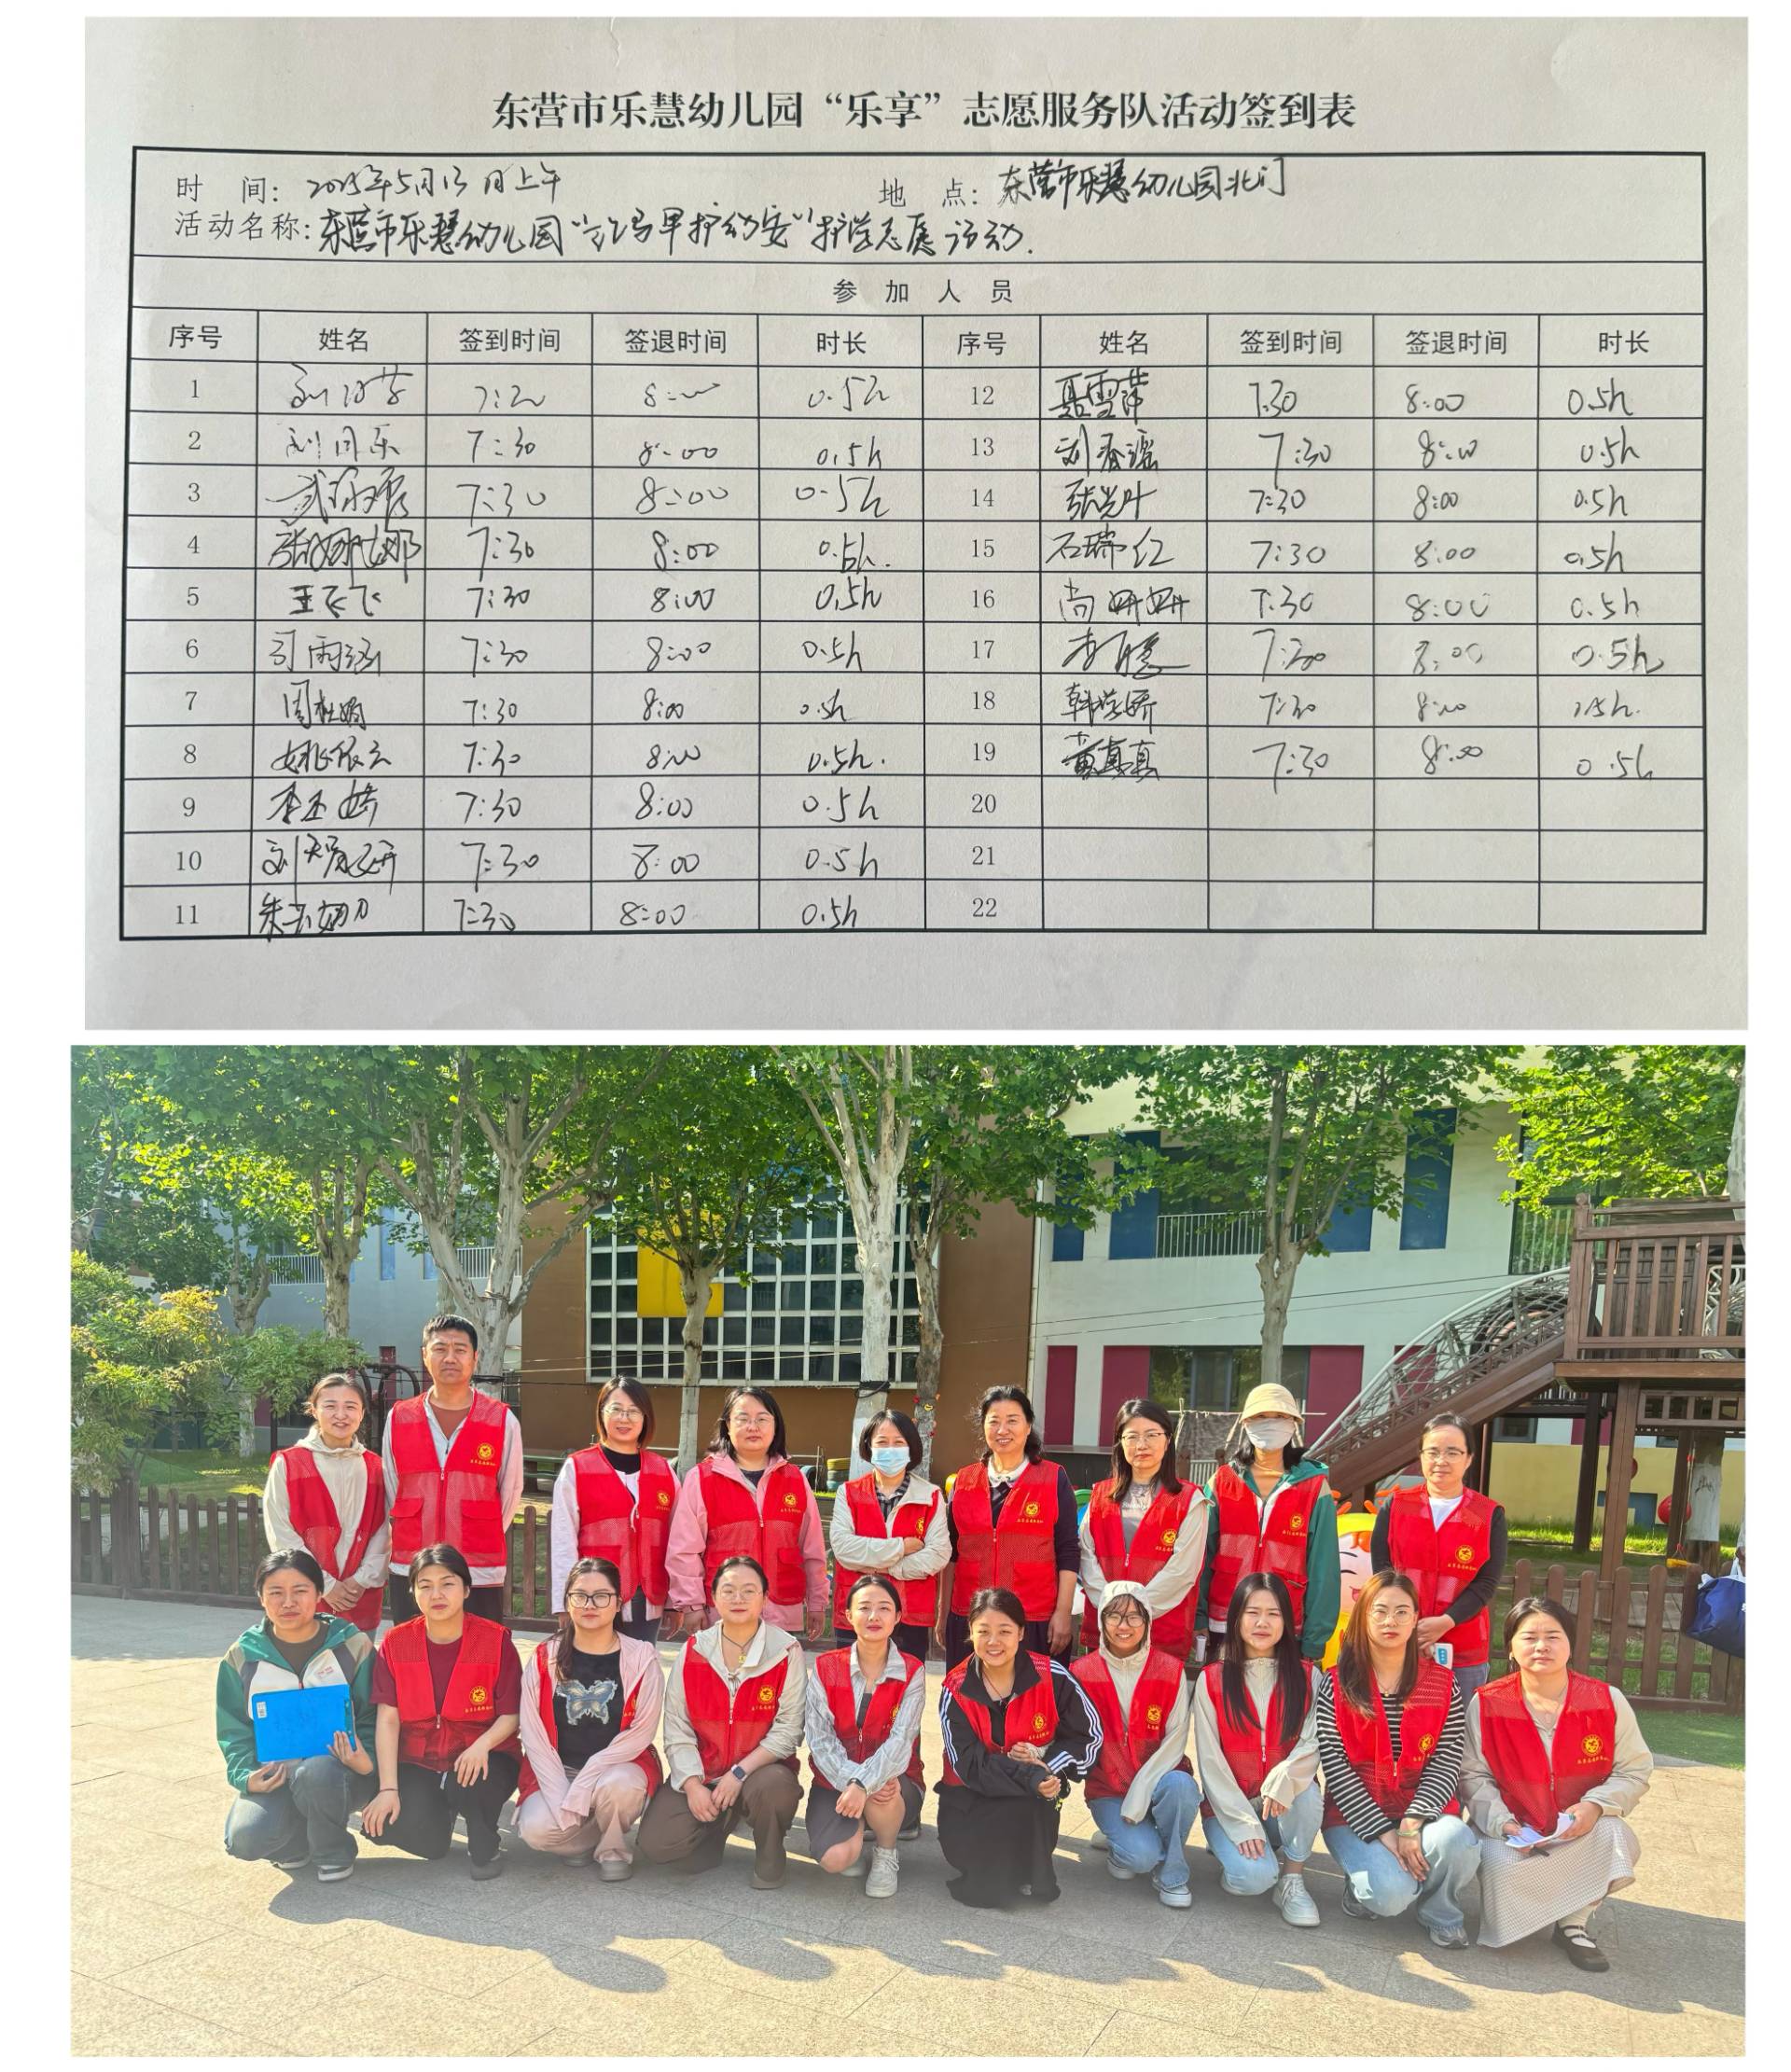 东营市乐慧幼儿园“乐享”志愿服务队活动签到表
时 间: 2025年5月13日上午 地 点: 东营市乐慧幼儿园北门
活动名称: 东营市乐慧幼儿园“红马甲护幼安”护学志愿活动.
参 加 人 员
序号 姓名 签到时间 签退时间 时长 序号 姓名 签到时间 签退时间 时长
1 8:00 0.5h 12 聂雪萍 7:30 8:00 0.5h
2 刘月乐 7:30 8:00 0.5h 13 刘春瑶 7:30 8:00 0.5h
3 7:30 8:00 0.5h 14 张兰叶 7:30 8:00 0.5h
4 张娜娜 7:30 8:00 0.5h. 15 石瑞红 7:30 8:00 0.5h
5 王飞飞 7:30 8:00 0.5h 16 尚妍妍 7:30 8:00 0.5h
6 司雨涵 7:30 8:00 0.5h 17 7:30 8:00 0.5h
7 周桂娟 7:30 8:00 0.5h 18 韩学娇 7:30 8:00 0.5h.
8 姚依云 7:30 8:00 0.5h. 19 黄真真 7:30 8:00 0.5h
9 李玉娇 7:30 8:00 0.5h 20
10 7:30 8:00 0.5h 21
11 7:30 8:00 0.5h 22